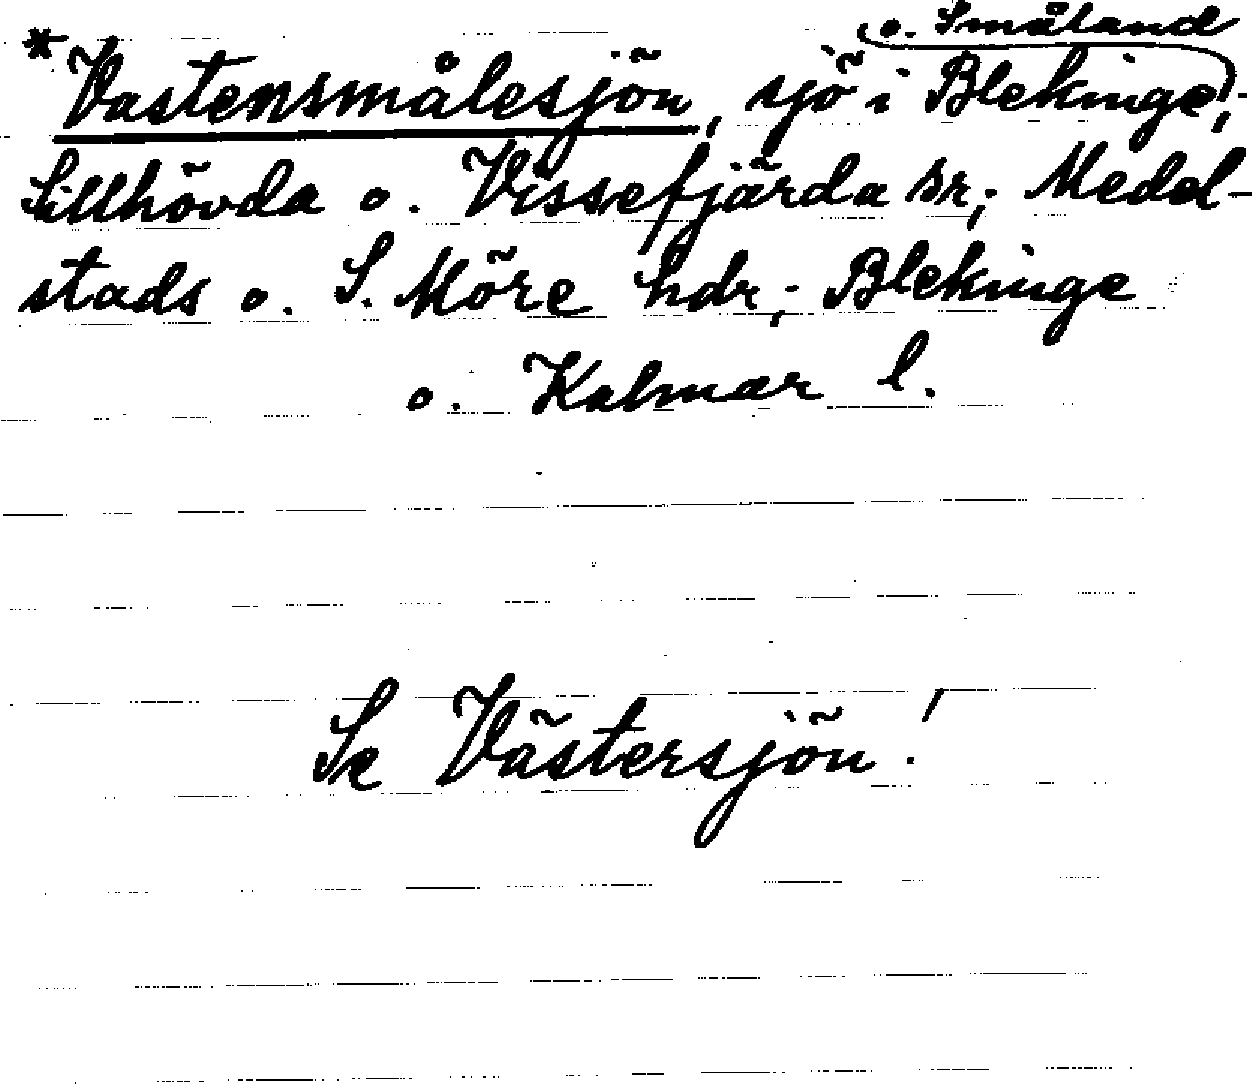 o. Småland
*Vastensmålesjön, sjö i Blekinge,
Sillhövda o. Vissefjärda sr, Medel-
stads o. S. Möre hdr, Blekinge
o. Kalmar l.
Se Västersjön!